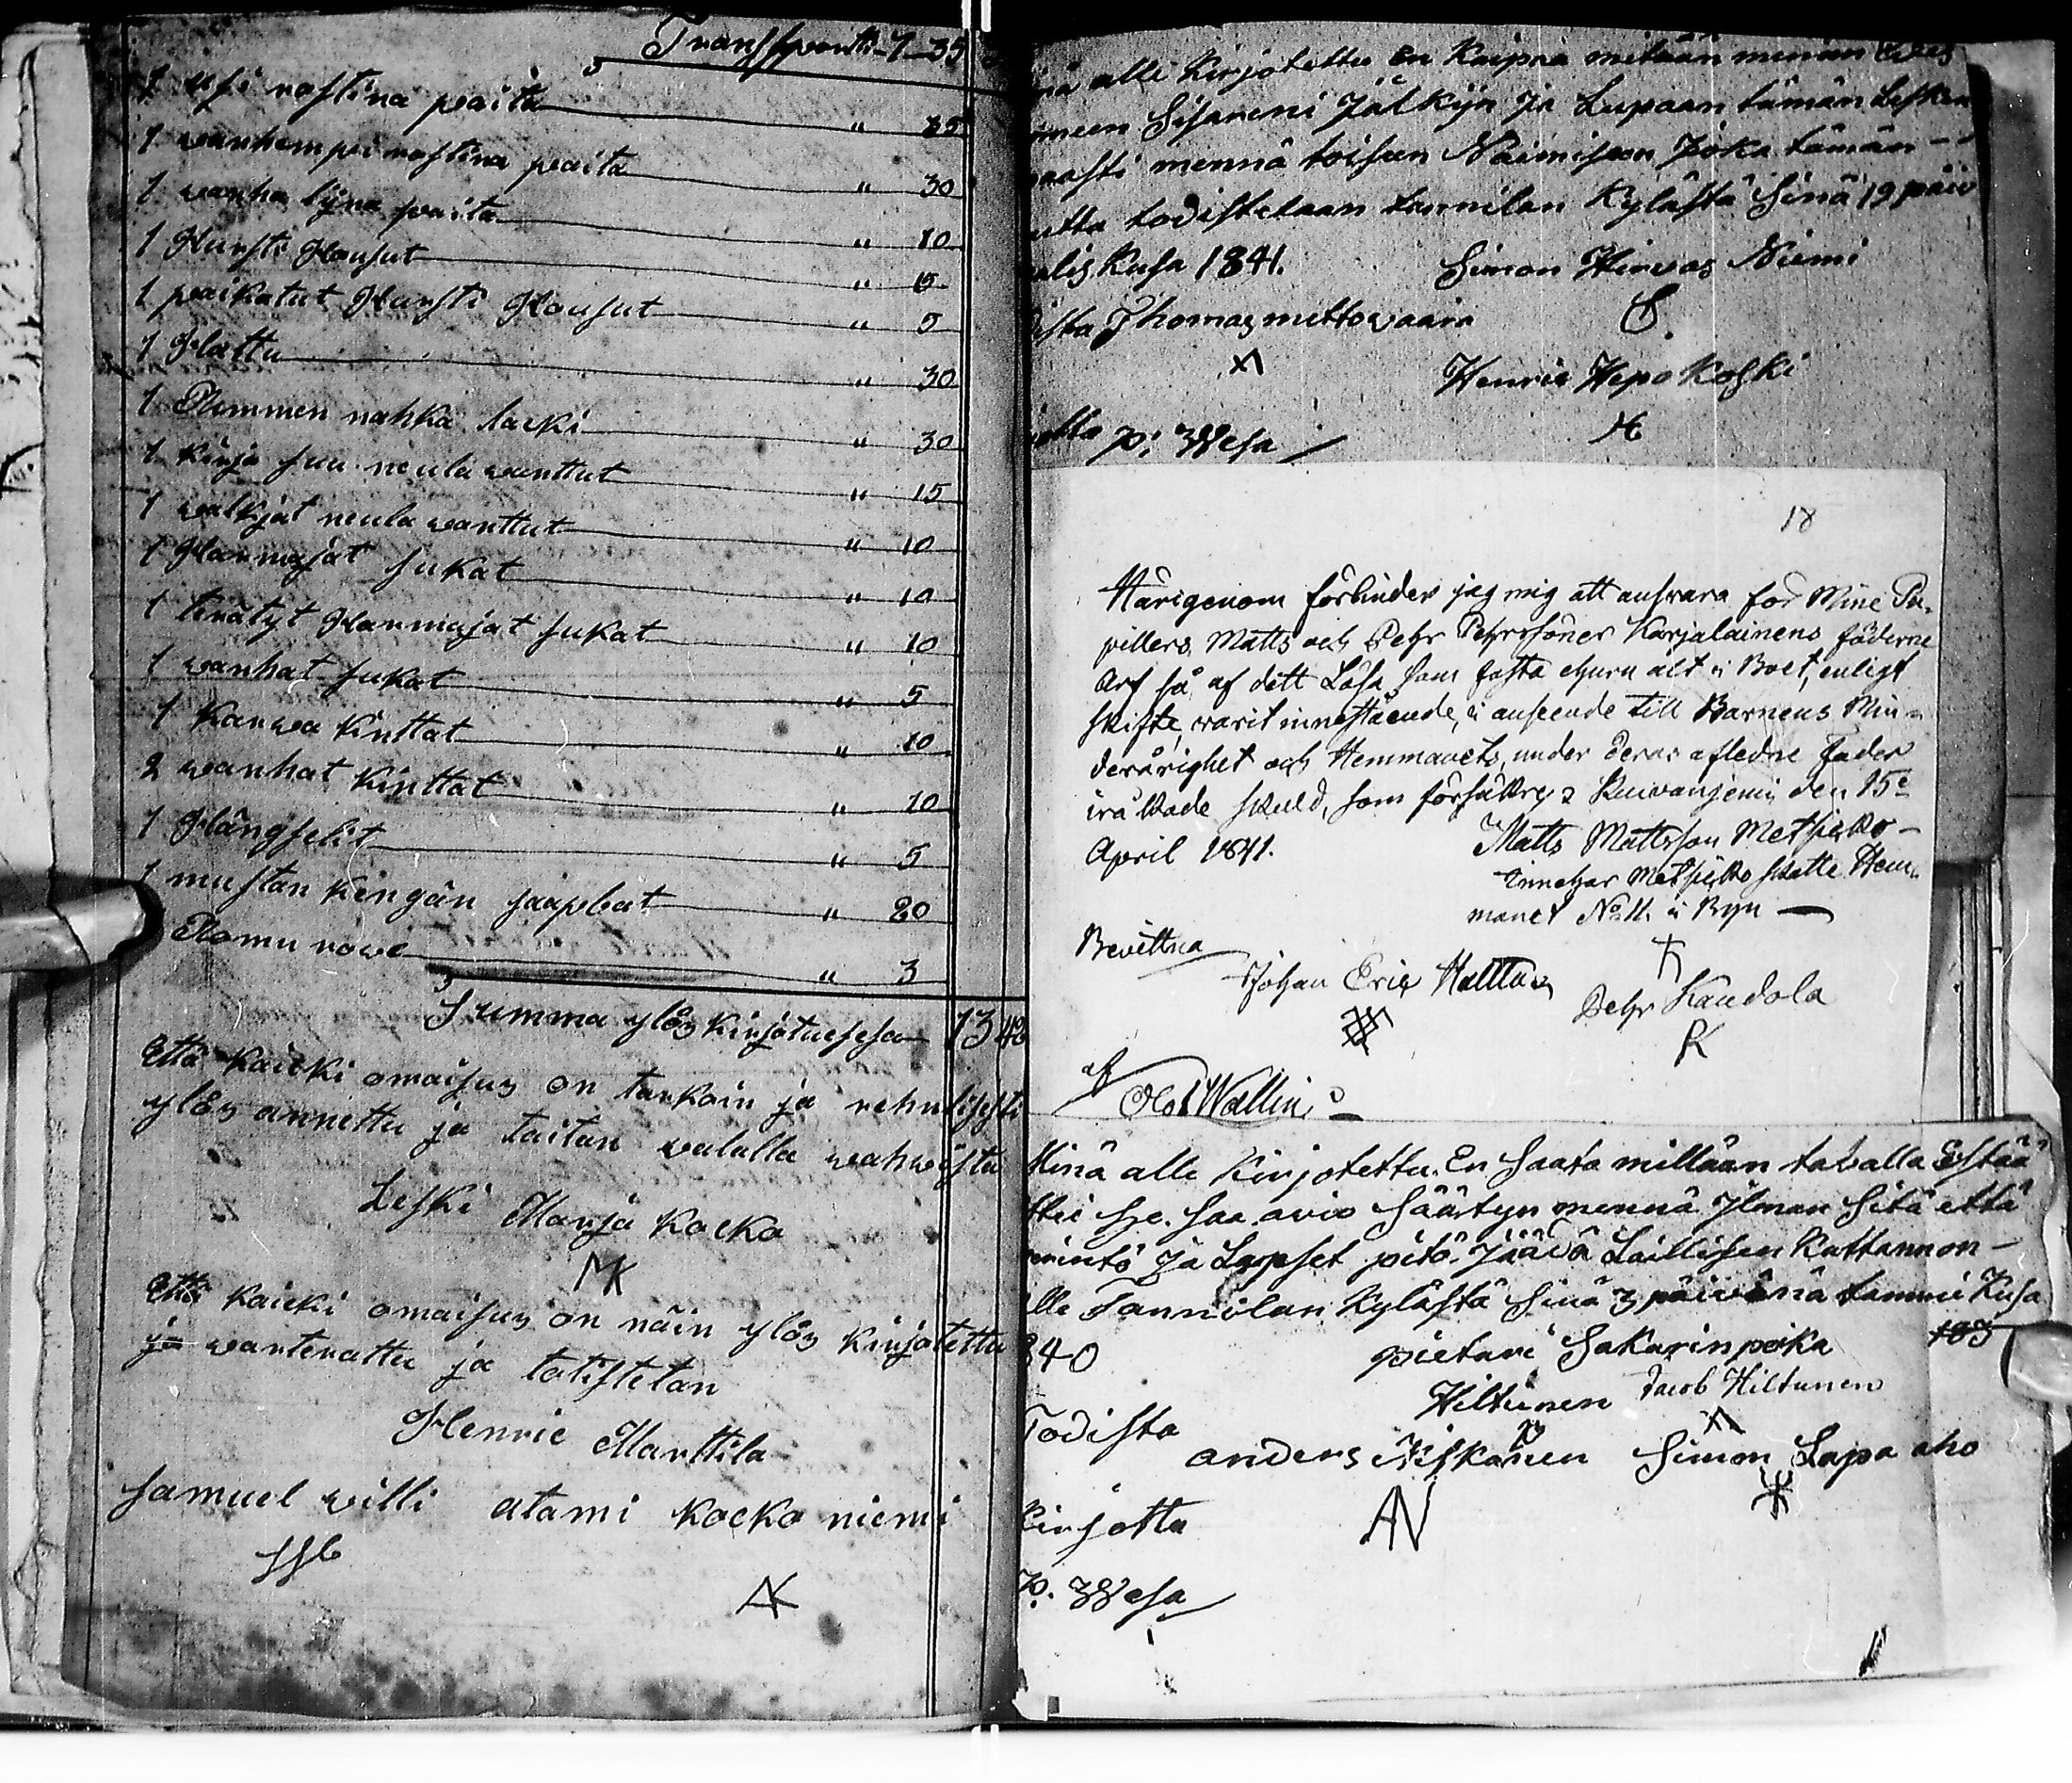 Transsportt 7 35
1 usi roslina paita " 35
1 wanhempi roslina paita " 30
1 wanha lijna paita " 10
1 Hursti Housut " 15
1 paikatut Hursti Housut " 5
1 Hattu " 30
1 Lammen nahka lacki " 30
1 kirja suu neula wanttut " 15
1 walkjat neula wanttut " 10
1 Harmajat sukat " 10
1 terätyt Harmajat sukat " 10
1 wanhat sukat " 5
1 Karwa kinttat " 10
2 wanhat kinttat " 10
1 Hängselit " 5
1 mustan kengän saapbat " 20
Romu rowe " 3
Summa ylös kirjotuesesa 13 48
Että kaicki omaisus on tarkoin ja rehulisesti
ylös annettu ja taitan walalla wahwista
Leski Marja kocko
MK
Että kaicki omaisus on näin ylös kirjotettu
ja warterattu ja totistetan
Henric Marttila
Samuel willi atami kocko niemi
AK
nä alle Kirjotettu En Kaipaa mitään minun
meen Sisareni Jälkijn Ja Lupaan tämän Lesken
paasti mennä toiseen Naimiseen Joka tämän -
utta todistetaan tannilan Kylästä Sinä 19 päiv
alis Kusa 1841. Simon Hirwas Niemi
S.
ista Thomas mettowaara
Henric Hepo Koski
otta P: Wesa
18
Härigenom förbinder jag mig att answara for Mine Pu-
pillers Matts och Pehr Pehrssoner Karjalainens fäderne
Arf så af dett Lösa som fasta ehuru alt i Boet, enligt
skifte, warit innestående, i anseende till Barnens Min-
derårighet och Hemmanets, under deras afledne Fader
iråkade skuld, som försäkras Kuivanjemi den 15e
April 1841. Matts Mattsson Metsjeko-
innehar Metsjeko skatte Hem-
manet No 11. i Byn
Bevittna
Johan Eric Halttu
Pehr Kaudola
PK
af
Olof Wallin
Minä alle Kirjotettu. En Saata millään taballa Estää
ttei Se. saa avio Säätyn mennä Jlman Sitä että
mintö Ja Lapset pitö. Jäävä Laillisen Kattannon -
lle Tannilan Kylästä Sinä 3 päivänä tammi Kusa
840 pietari Sakarinpoika 103
Hiltunen Jacob Hiltunen
Todista
anders Niskanen Simon Lapa aho
AN
Kirjotta
P. Wesa